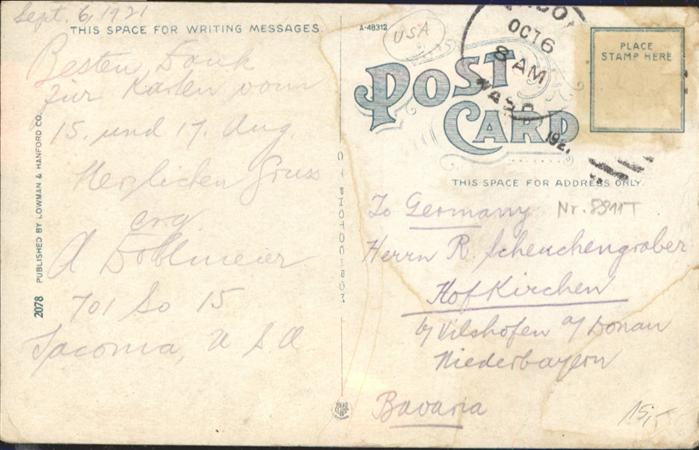 Sept. 6, 1921
THIS SPACE FOR WRITING MESSAGES
Besten Dank
für Karten vom
15. und 17. Aug
Herzlichen Gruss
erg
A Dollmeier
701 So 15
Tacoma, U S A
2078 PUBLISHED BY LOWMAN & HANFORD CO.
A-48312
USA
POST CARD
OCT 6
8 AM
WASH.
192
PLACE
STAMP HERE
THIS SPACE FOR ADDRESS ONLY.
To Germany
Herrn R. Scheuchengraber
Hofkirchen
b/ Vilshofen a/ Donau
Niederbayern
Bavaria
15,-